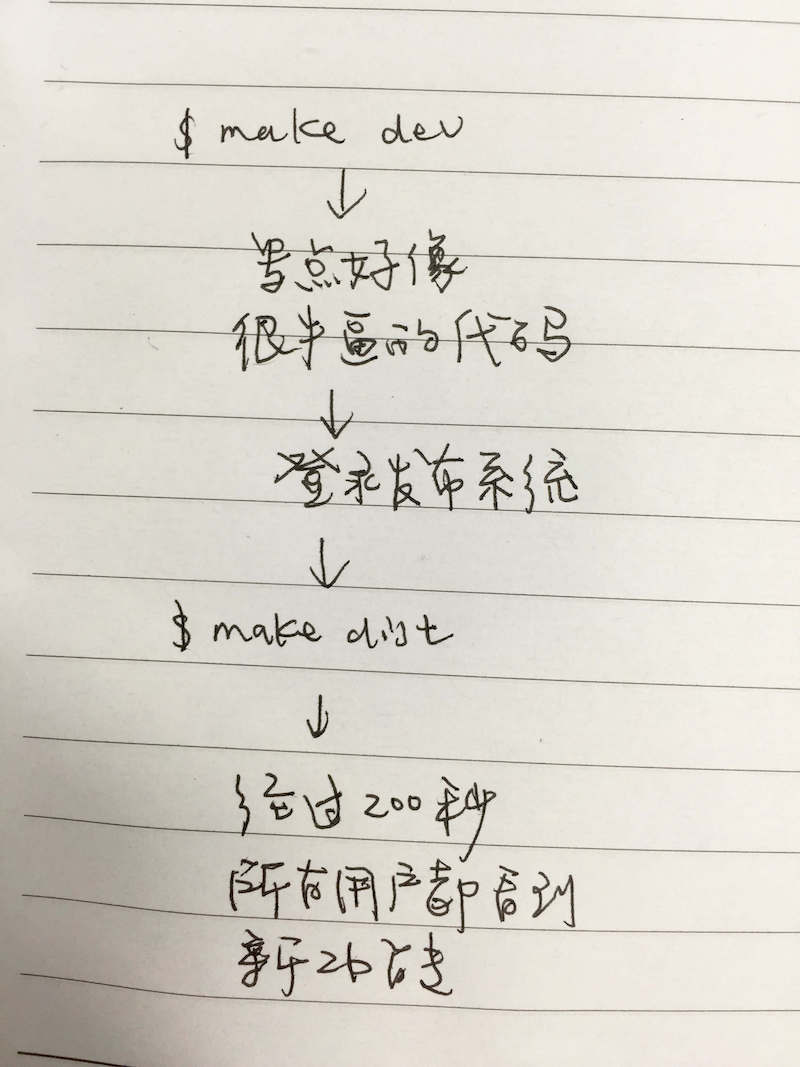 $ make dev
↓
写点好像
很牛逼的代码
↓
登录发布系统
↓
$ make dist
↓
经过200秒
所有用户都看到
新2b